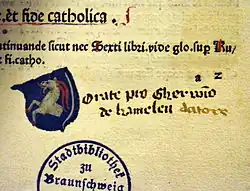 .et fide catholica.
tinuande sicut nec Sexti libri. vide glo. sup Ru
et fi. catho.
a z
Orate pro Gherwino
de hamelen datore
Stadtbibliothek
zu
Braunschweig